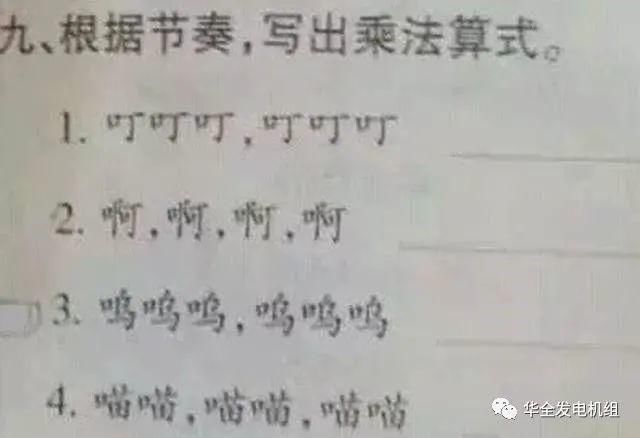 九、根据节奏,写出乘法算式。
1. 叮叮叮,叮叮叮
2. 啊,啊,啊,啊
3. 呜呜呜,呜呜呜
4. 喵喵,喵喵,喵喵
华全发电机组